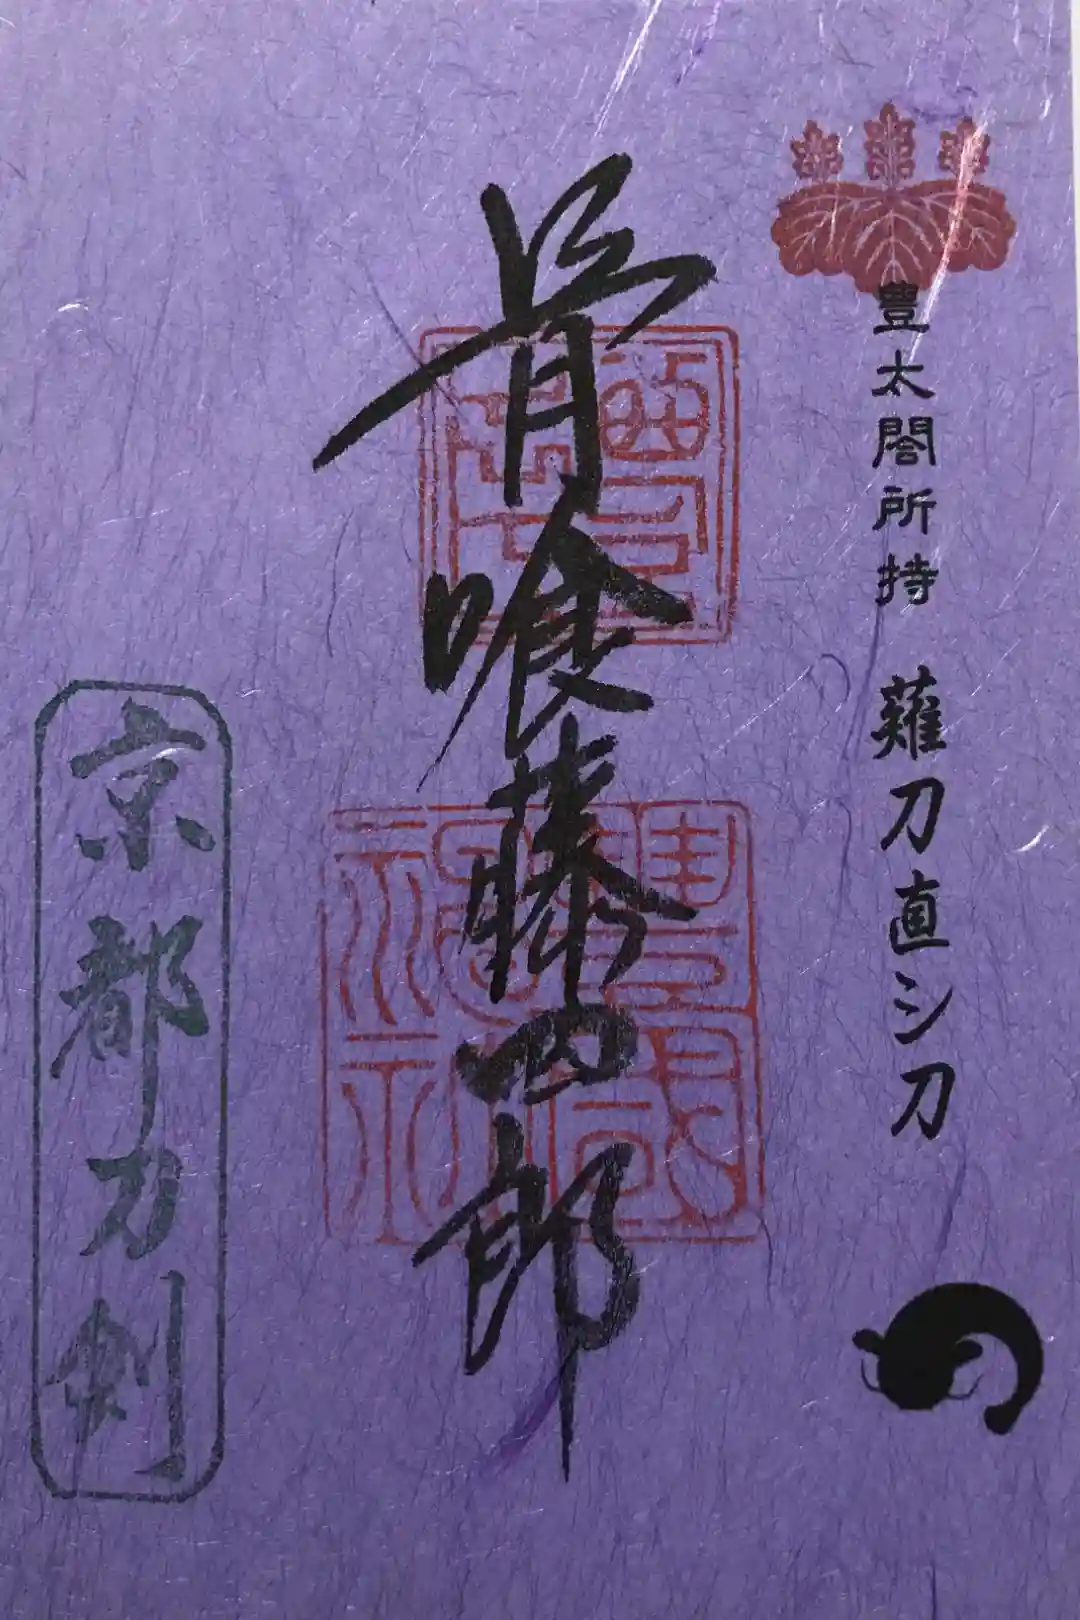 豊太閤所持 薙刀直シ刀
骨喰藤四郎
豊国神社
京都刀剣